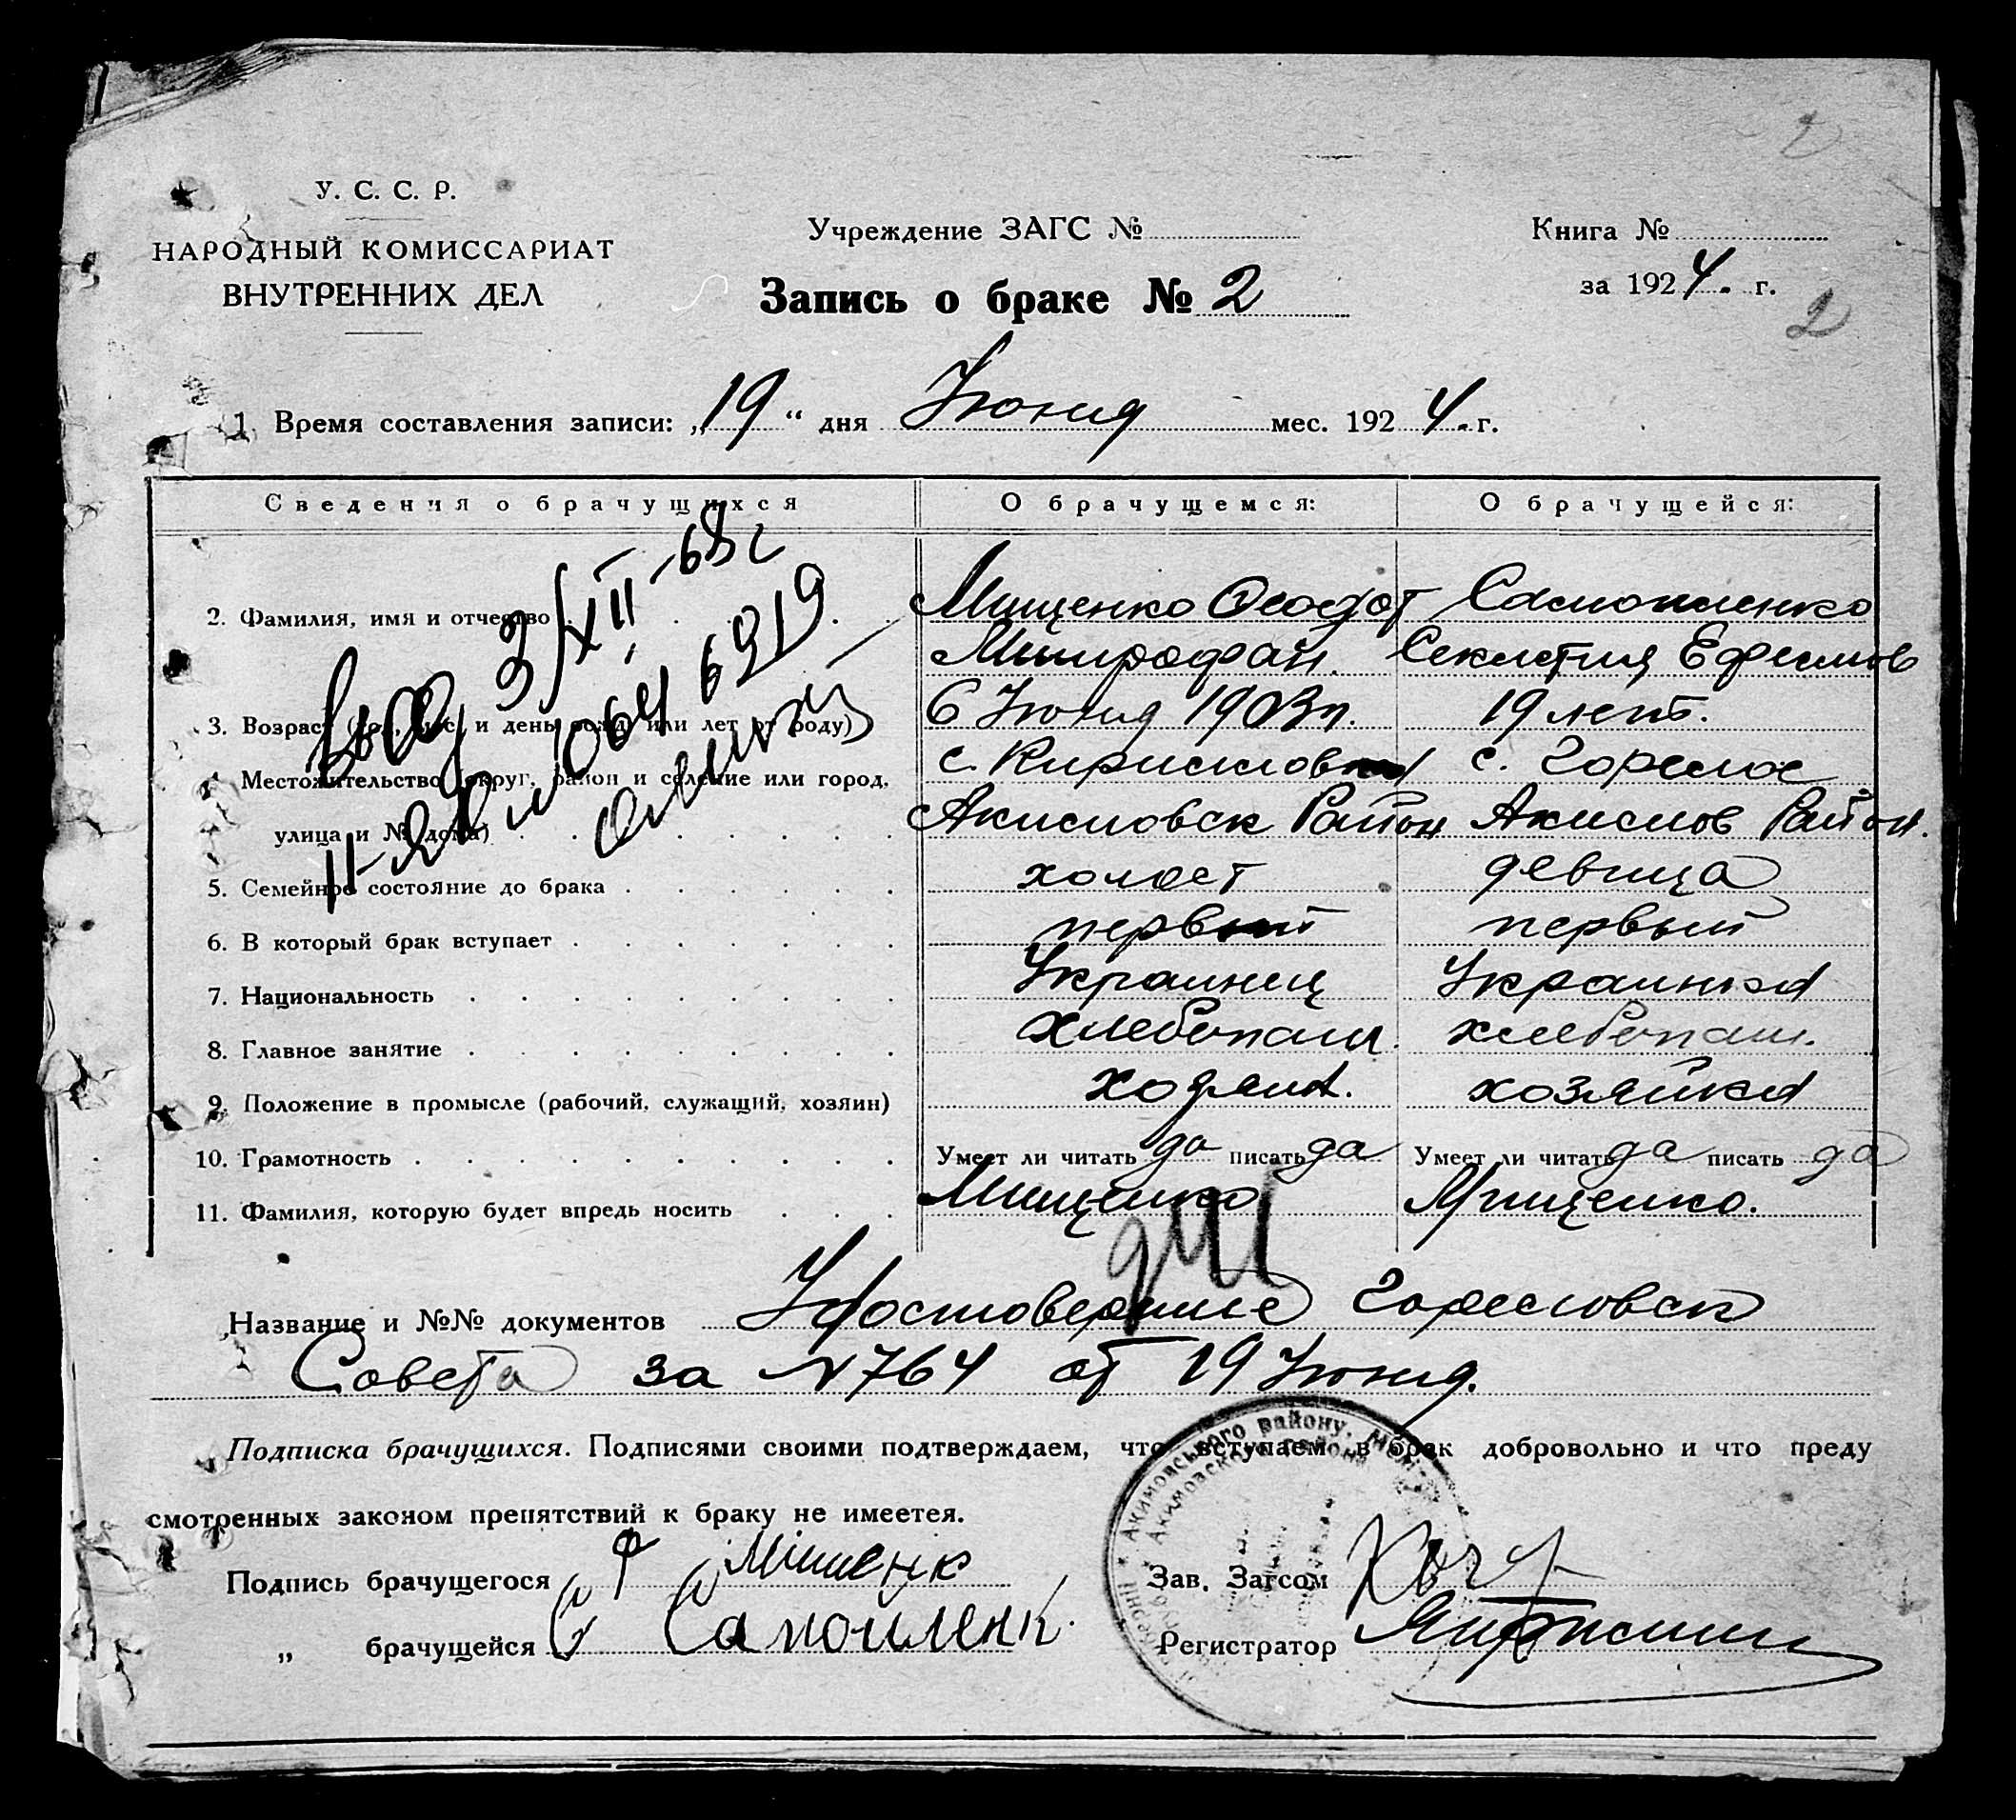 2
У. С. С. Р.
НАРОДНЫЙ КОМИССАРИАТ
ВНУТРЕННИХ ДЕЛ
Учреждение ЗАГС №
Запись о браке № 2
Книга №
за 1924. г.
2
1. Время составления записи: „19“ дня Июня мес. 1924. г.
Сведения о брачущихся О брачущемся: О брачущейся:
3/XII-68г
6919
2. Фамилия, имя и отчество Мищенко Феодот Самойленко
Митрофан. Ефимов
3. Возраст (год, мес. и день рожд. или лет от роду) 6 Июня 1903г. 19 лет.
4. Местожительство (округ, район и селение или город, с. Кирилловка с. Горелое
улица и № дома) Акимовск Район Акимов Район.
5. Семейное состояние до брака холост девица
6. В который брак вступает первый первый
7. Национальность Украинец Украинка
8. Главное занятие хлебопаш. хлебопаш.
9. Положение в промысле (рабочий, служащий, хозяин) хозяин. хозяйка
10. Грамотность Умеет ли читать да писать да Умеет ли читать да писать да
11. Фамилия, которую будет впредь носить Мищенко Мищенко.
Название и №№ документов Удостоверение Гореловск
Совета за N 764 от 19 Июня.
Подписка брачущихся. Подписями своими подтверждаем, что вступаем в брак добровольно и что преду
смотренных законом препятствий к браку не имеетея.
Акимовського району.
Акимовского района
Подпись брачущегося Ф Мішенк
Зав. Загсом
„ брачущейся Самойленк.
Регистратор